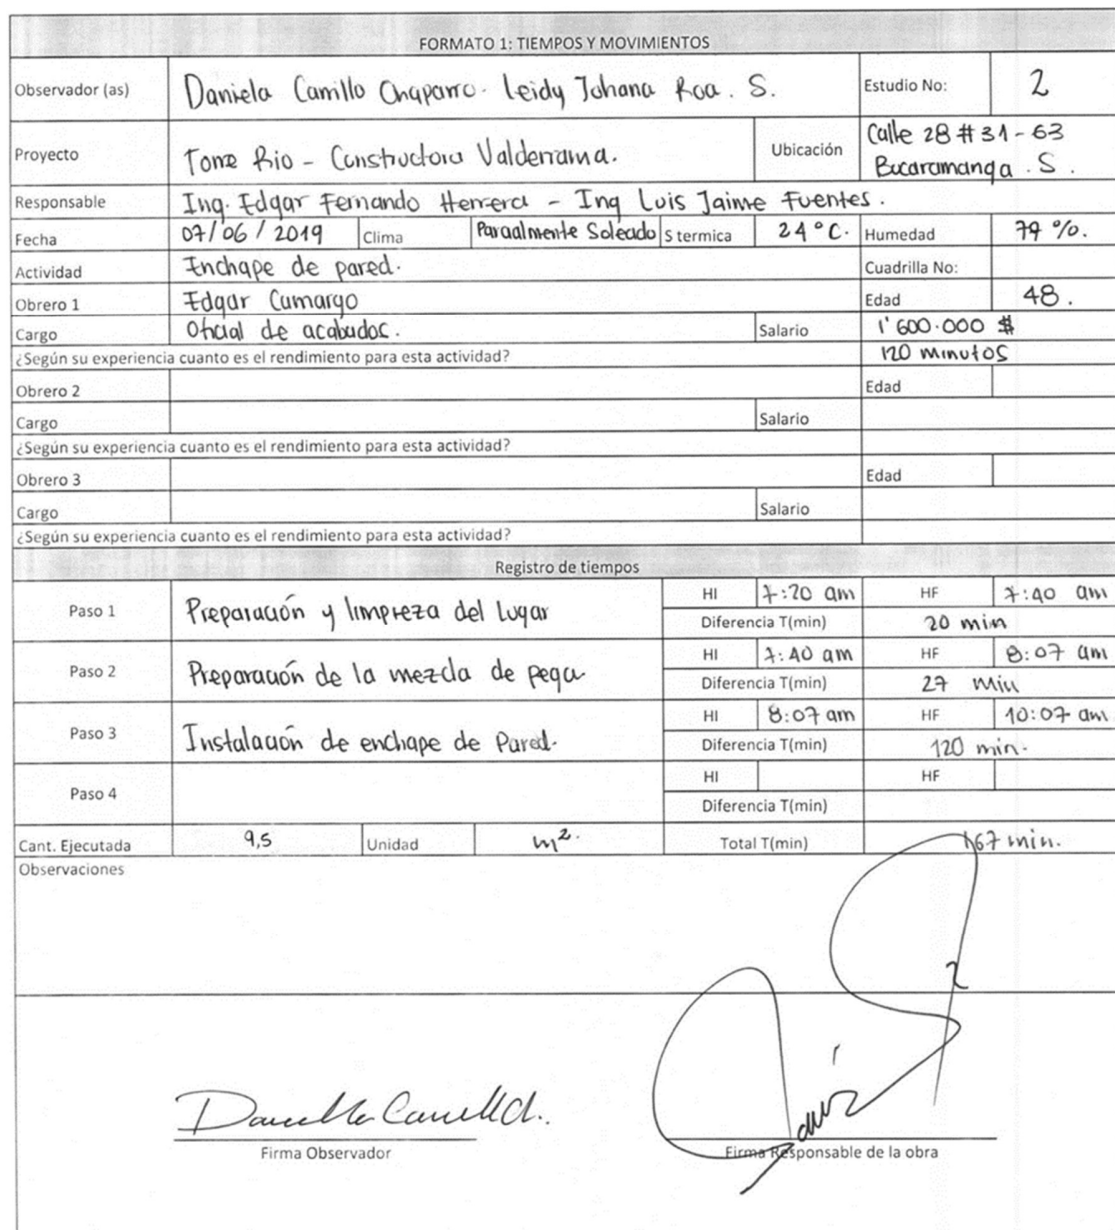 FORMATO 1: TIEMPOS Y MOVIMIENTOS
Observador (as) Daniela Carrillo Chaparro. Leidy Johana Roa. S. Estudio No: 2
Proyecto Torre Rio - Constructora Valderrama. Ubicación Calle 28 # 31 - 63 Bucaramanga. S.
Responsable Ing. Edgar Fernando Herrera - Ing Luis Jaime Fuentes.
Fecha 07/06/2019 Clima Parcialmente Soleado S termica 24°C. Humedad 79 %.
Actividad Enchape de pared. Cuadrilla No:
Obrero 1 Edgar Camargo Edad 48.
Cargo Oficial de acabados. Salario 1'600.000 $
¿Según su experiencia cuanto es el rendimiento para esta actividad? 120 minutos
Obrero 2 Edad
Cargo Salario
¿Según su experiencia cuanto es el rendimiento para esta actividad?
Obrero 3 Edad
Cargo Salario
¿Según su experiencia cuanto es el rendimiento para esta actividad?
Registro de tiempos
Paso 1 Preparación y limpieza del lugar HI 7:20 am HF 7:40 am
Diferencia T(min) 20 min
Paso 2 Preparación de la mezcla de pega HI 7:40 am HF 8:07 am
Diferencia T(min) 27 min
Paso 3 Instalación de enchape de Pared. HI 8:07 am HF 10:07 am.
Diferencia T(min) 120 min.
Paso 4 HI HF
Diferencia T(min)
Cant. Ejecutada 9,5 Unidad m². Total T(min) 167 min.
Observaciones
Firma Observador Firma Responsable de la obra